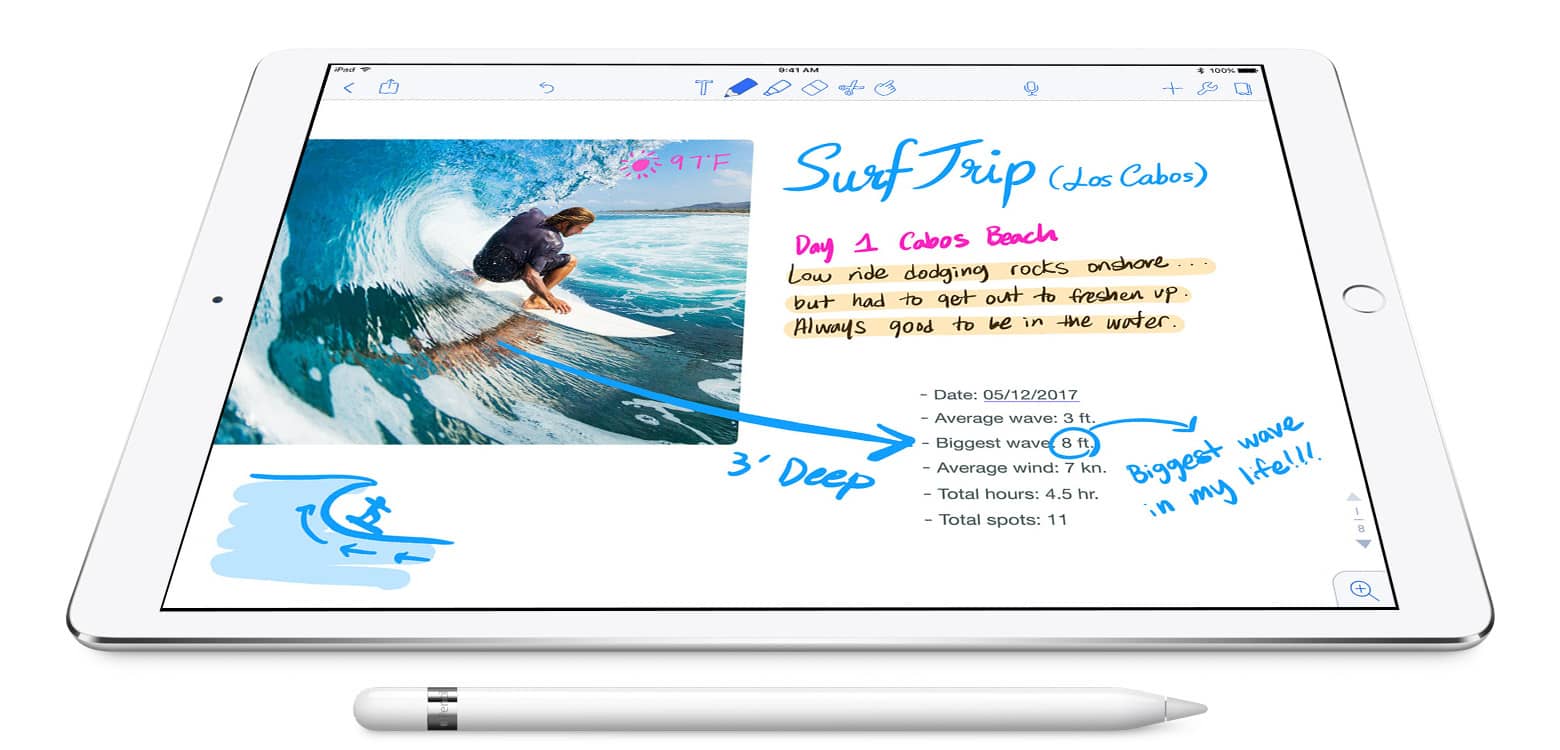 iPad
9:41 AM
100%
97°F
Surf Trip (Los Cabos)
Day 1 Cabos Beach
Low ride dodging rocks onshore...
but had to get out to freshen up.
Always good to be in the water.
- Date: 05/12/2017
- Average wave: 3 ft.
- Biggest wave: 8 ft.
- Average wind: 7 kn.
- Total hours: 4.5 hr.
- Total spots: 11
3' Deep
Biggest wave
in my life!!!
1
8